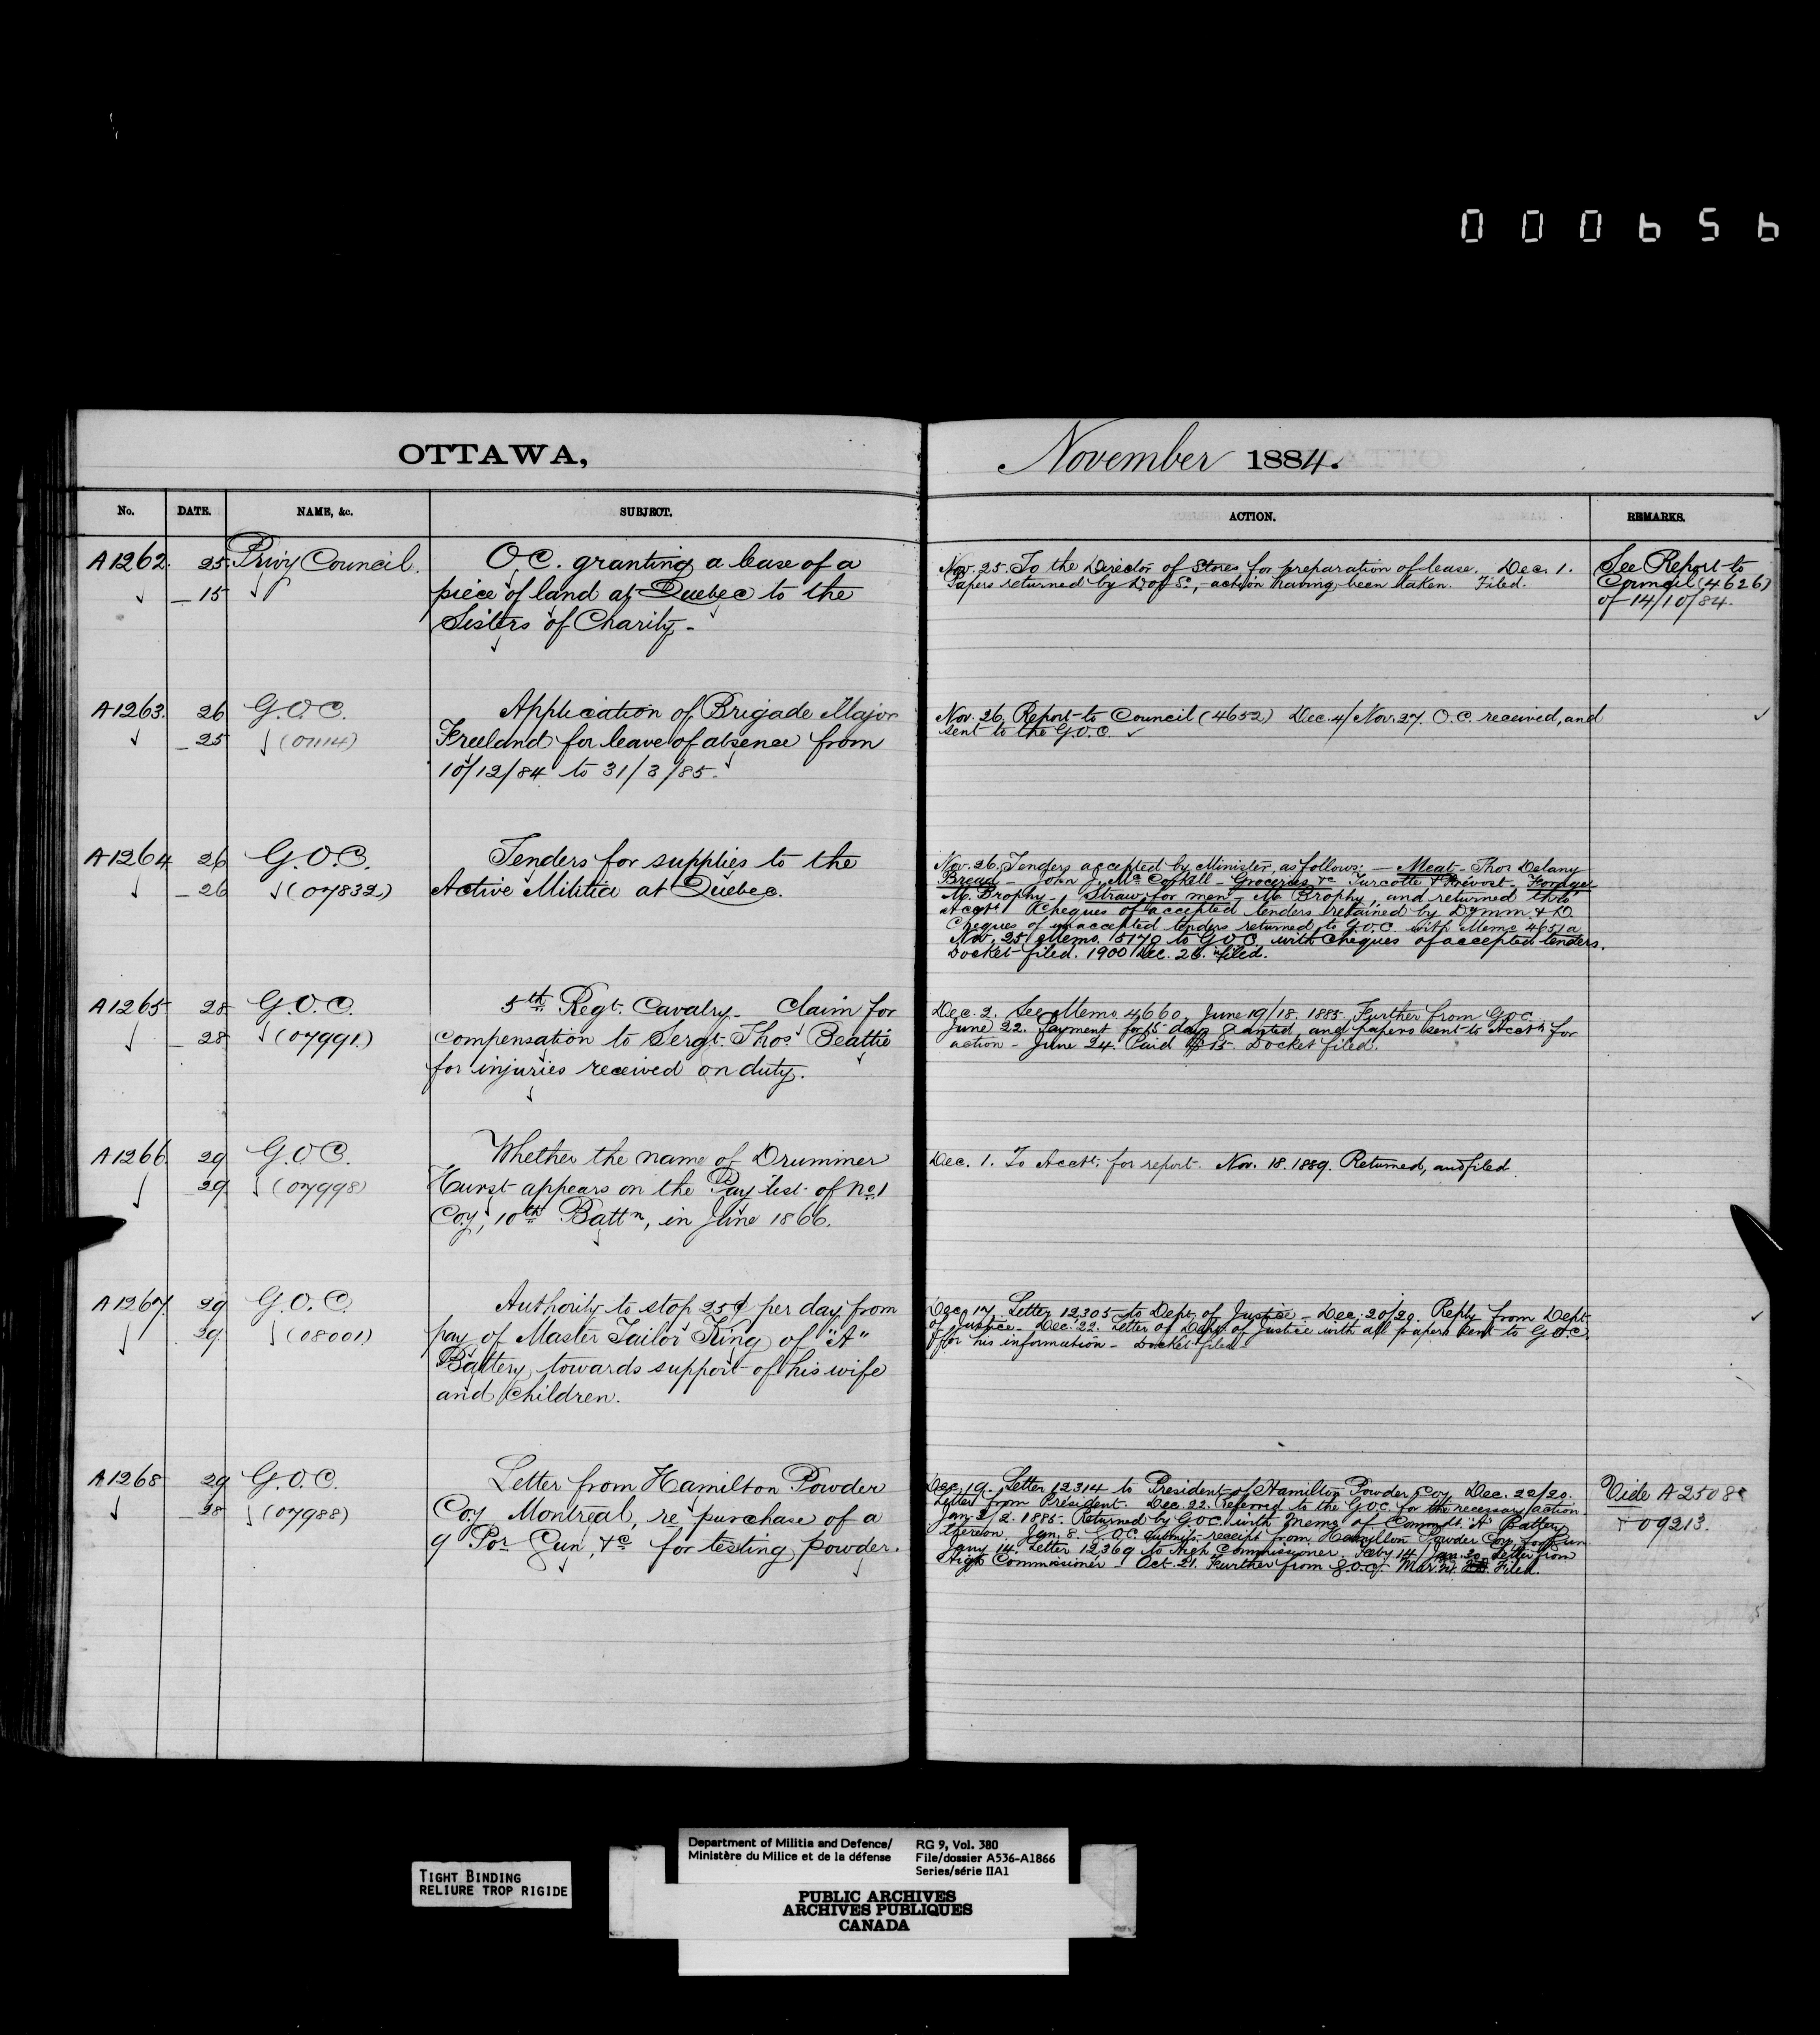 000656
OTTAWA,
November 1884.
No.
DATE.
NAME, &c.
SUBJECT.
ACTION.
REMARKS.
A1262. 25 Privy Council. O.C. granting a lease of a
15 piece of land at Quebec to the
Sisters of Charity.
Nov. 25. To the Director of Stores for preparation of lease. Dec. 1.
Papers returned by D of S., action having been taken. Filed.
See Report to
Council (4626)
of 14/10/84.
A1263. 26 G.O.C. Application of Brigade Major
25 Freeland for leave of absence from
10/12/84 to 31/3/85.
Nov. 26. Report to Council (4652) Dec. 4/Nov. 27. O.C. received, and
sent to the G.O.C.
A1264 26 G.O.C. Tenders for supplies to the
26 (07832) Active Militia at Quebec.
Nov. 26. Tenders accepted by Minister, as follows: — Meat - Thos Delany
Bread - John J. - Groceries &c Turcotte & Prevost. Forage
M. Brophy - Straw for men - M. Brophy, and returned thro
Acct. Cheques of accepted tenders retained by
Cheques of unaccepted tenders returned to G.O.C. with Memo 4651a
Nov. 25/ Memo. 5170 to G.O.C. with cheques of accepted tenders.
Docket filed. 1900 Dec. 26. Filed.
A1265 28 G.O.C. 5th Regt. Cavalry - Claim for
28 (07991.) compensation to Sergt. Thos. Beattie
for injuries received on duty.
Dec. 2. See Memo 4660, June 19/18. 1885. Further from G.O.C.
June 22. Payment for 15 days granted, and papers sent to Acct. for
action - June 24. Paid $15. Docket filed.
A1266. 29 G.O.C. Whether the name of Drummer
29 (07998) Hurst appears on the Pay list of No. 1
Coy, 10th Battn, in June 1866.
Dec. 1. To Acct. for report. Nov. 18. 1889. Returned, and filed.
A1267. 29 G.O.C. Authority to stop 25¢ per day from
29. (08001) pay of Master Tailor King of "A"
Battery, towards support of his wife
and children.
Dec. 17. Letter 12305 to Dept. of Justice - Dec. 20/20. Reply from Dept
of Justice - Dec. 22. Letter of Dept of Justice with all papers sent to G.O.C.
for his information - Docket filed.
A1268 29 G.O.C. Letter from Hamilton Powder
28 (07988) Coy Montreal, re purchase of a
9 Por Gun, &c for testing powder.
Dec. 19. Letter 12314 to President of Hamilton Powder Coy. Dec. 22/20.
Letter from President. Dec. 22. Referred to the G.O.C. for the necessary action.
Jan. 2/2. 1885. Returned by G.O.C. with Memo of Commdt. "A" Battery
thereon. Jan. 8. G.O.C. submits receipt from Hamilton Powder Coy. for Gun
Jany 14. Letter 12369 to High Commissioner. Feby 14/Jan. 30. Letter from
High Commissioner - Oct. 21. Further from G.O.C. Filed.
Vide A2508
& 09213.
TIGHT BINDING
RELIURE TROP RIGIDE
Department of Militia and Defence/
Ministère du Milice et de la défense
RG 9, Vol. 380
File/dossier A536-A1866
Series/série IIA1
PUBLIC ARCHIVES
ARCHIVES PUBLIQUES
CANADA